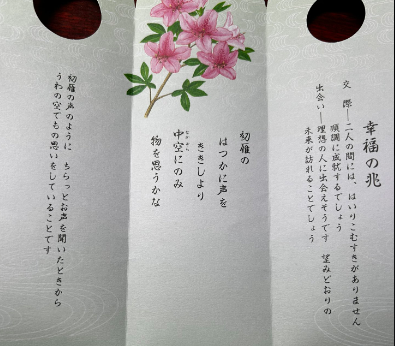 幸福の兆
交　際―二人の間には、はいりこむすきがありません
順調に成就するでしょう
出会い―理想の人に出会えそうです　望みどおりの
未来が訪れることでしょう
初雁の
はつかに声を
ききしより
中空にのみ
なかぞら
物を思うかな
初雁の声のように　ちらっとお声を聞いたときから
うわの空でもの思いをしていることです